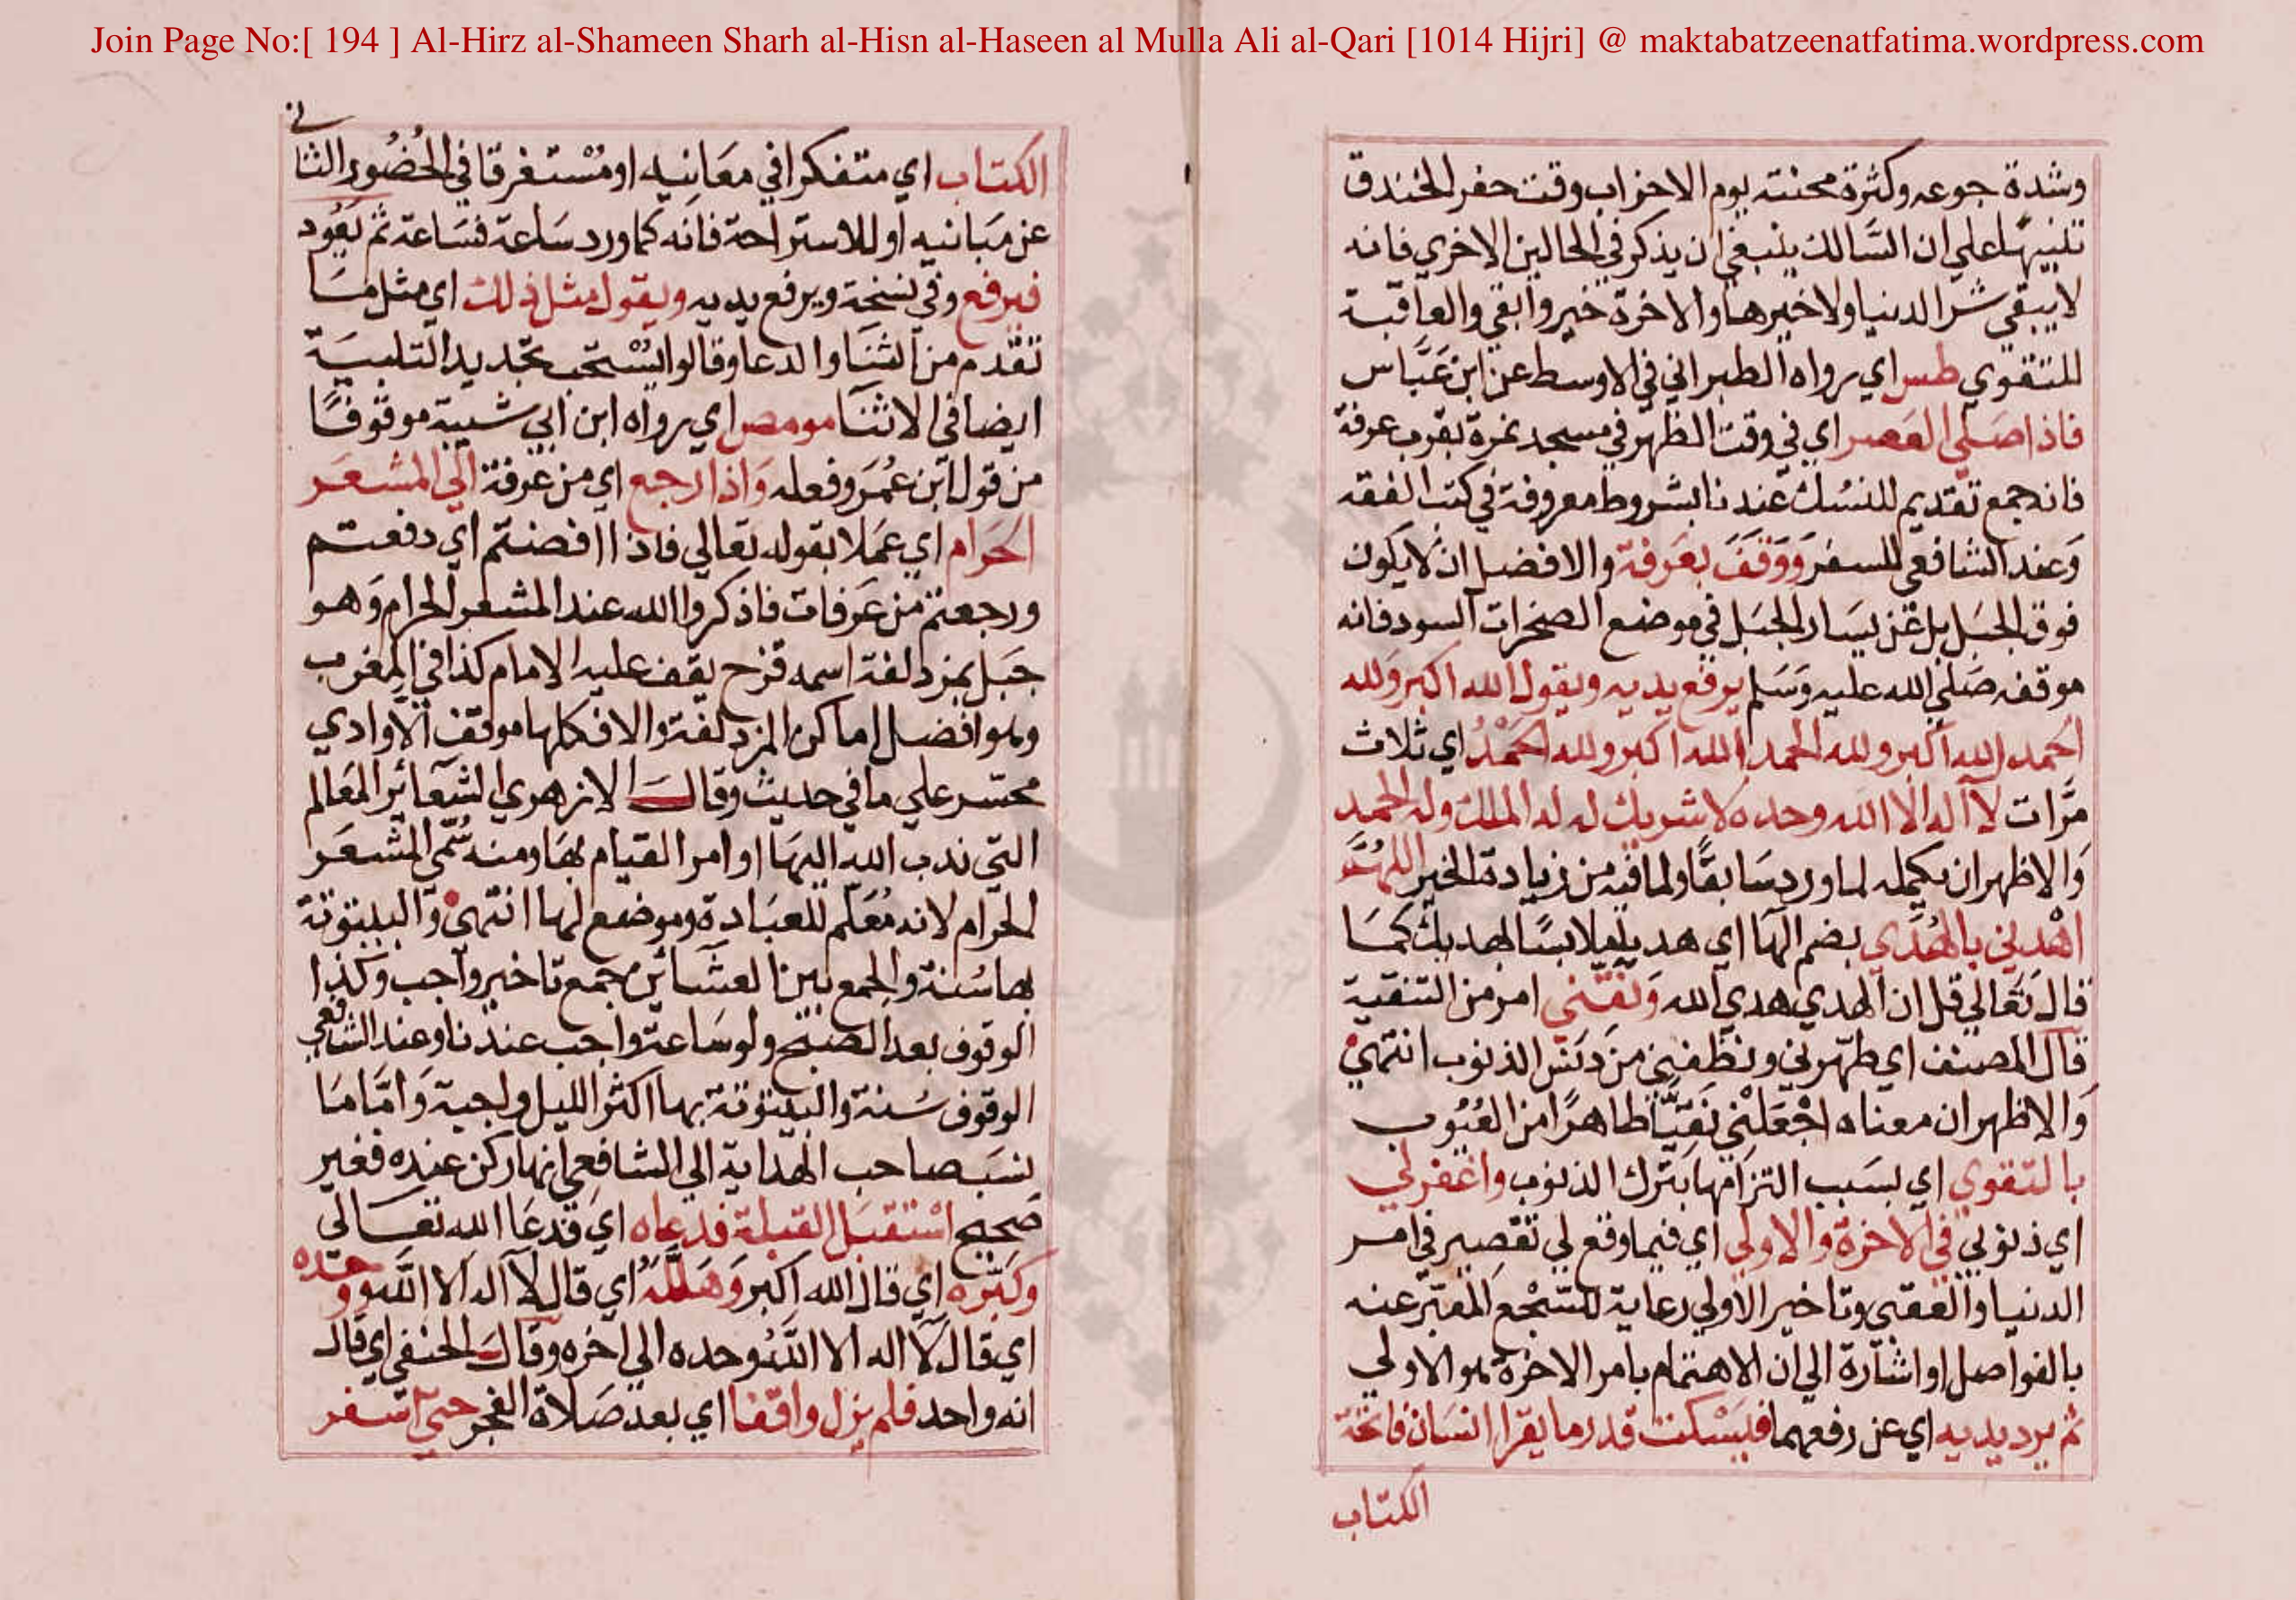 Join Page No:[ 194 ] Al-Hirz al-Shameen Sharh al-Hisn al-Haseen al Mulla Ali al-Qari [1014 Hijri] @ maktabatzeenatfatima.wordpress.com
وشدة جوعه وكثرة محنته يوم الاحزاب وقت حفر الخندق
تنبيها علي ان السالك ينبغي ان يذكر في الحالين الاخري فانه
لا يبقي شر الدنيا ولا خيرها والاخرة خير وابقي والعاقبة
للتقوي طس اي رواه الطبراني في الاوسط عن ابن عباس
فاذا صلي العصر اي في وقت الظهر في مسجد نمرة بقرب عرفة
فانه جمع تقديم للنسك عندنا بشروط معروفة في كتب الفقه
وعند الشافعي للسفر ووقف بعرفة والافضل ان لا يكون
فوق الجبل بل عن يسار الجبل في موضع الصخرات السود فانه
موقفه صلي الله عليه وسلم يرفع يديه ويقول الله اكبر ولله
الحمد الله اكبر ولله الحمد الله اكبر ولله الحمد اي ثلاث
مرات لا اله الا الله وحده لا شريك له له الملك وله الحمد
والاظهر ان يكمله لما ورد سابقا ولما فيه من زيادة الخير اللهم
اهدني بالهدي بضم الها اي هديا ملابسا لهديك كما
قال تعالي قل ان الهدي هدي الله ونقني امر من التنقية
قال المصنف اي طهرني ونظفني من دنس الذنوب انتهي
والاظهر ان معناه اجعلني نقيا طاهرا من العيوب
بالتقوي اي بسبب التزامها بترك الذنوب واغفر لي
اي ذنوبي في الاخرة والاولي اي فيما وقع لي تقصير في امر
الدنيا والعقبي وتاخير الاولي رعاية للسجع المعبر عنه
بالفواصل او اشارة الي ان الاهتمام بامر الاخرة هو الاولي
ثم يرد يديه اي عن رفعهما فيسكت قدر ما يقرا انسان فاتحة
الكتاب
الكتاب اي متفكرا في معانيه او مستغرقا في الحضور الثنا
ني
عن مبانيه او للاستراحة فانه كما ورد ساعة فساعة ثم يعود
فيرفع وفي نسخة ويرفع يديه ويقول مثل ذلك اي مثل ما
تقدم من الثنا والدعا وقالوا يستحب تجديد التلبية
ايضا في الاثنا مو مص اي رواه ابن ابي شيبة موقوفا
من قول ابن عمر وفعله واذا رجع اي من عرفة الي المشعر
الحرام اي عملا بقوله تعالي فاذا افضتم اي دفعتم
ورجعتم من عرفات فاذكروا الله عند المشعر الحرام وهو
جبل بمزدلفة اسمه قزح يقف عليه الامام كذا في المغرب
وهو افضل اماكن المزدلفة والا فكلها موقف الا وادي
محسر علي ما في حديث وقال الازهري الشعائر المعالم
التي ندب الله اليها وامر القيام بها ومنه سمي المشعر
الحرام لانه معلم للعبادة وموضع لها انتهي والبيتوتة
بها سنة والجمع بين العشائين جمع تاخير واجب وكذا
الوقوف بعد الصبح ولو ساعة واجب عندنا وعند الشافعي
الوقوف سنة والبيتوتة بها اكثر الليل واجبة واما ما
نسب صاحب الهداية الي الشافعي انها ركن عنده فغير
صحيح استقبل القبلة فدعاه اي فدعا الله تعالي
وكبره اي قال الله اكبر وهلله اي قال لا اله الا الله ووحده
اي قال لا اله الا الله وحده الي اخره وقال الحنفي اي قال
انه واحد فلم يزل واقفا اي بعد صلاة الفجر حتي اسفر